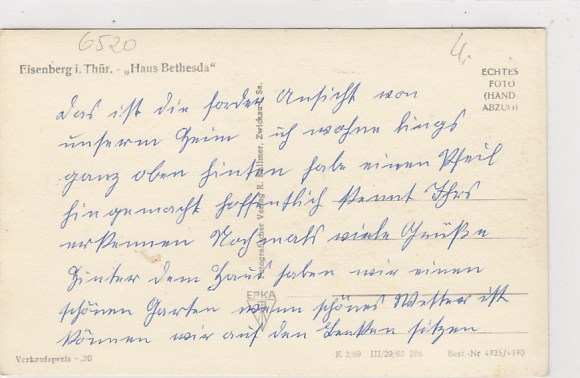 6520
4.
Eisenberg i. Thür. - „Haus Bethesda"
ECHTES
FOTO
(HAND-
ABZUG)
Das ist die forder Ansicht von
unserm Heim ich wohne lings
ganz oben hinten habe einen Pfeil
hingemacht hoffentlich könnt Ihrs
erkennen Nochmals viele Grüße
Hinter dem Haus haben wir einen
schönen Garten wenn schönes Wetter ist
können wir auf den Benken sitzen
Fotografischer Verlag R. Zwickau Sa.
EPKA
Verkaufspreis -.20
III/29/63
Best.-Nr 4935/4393